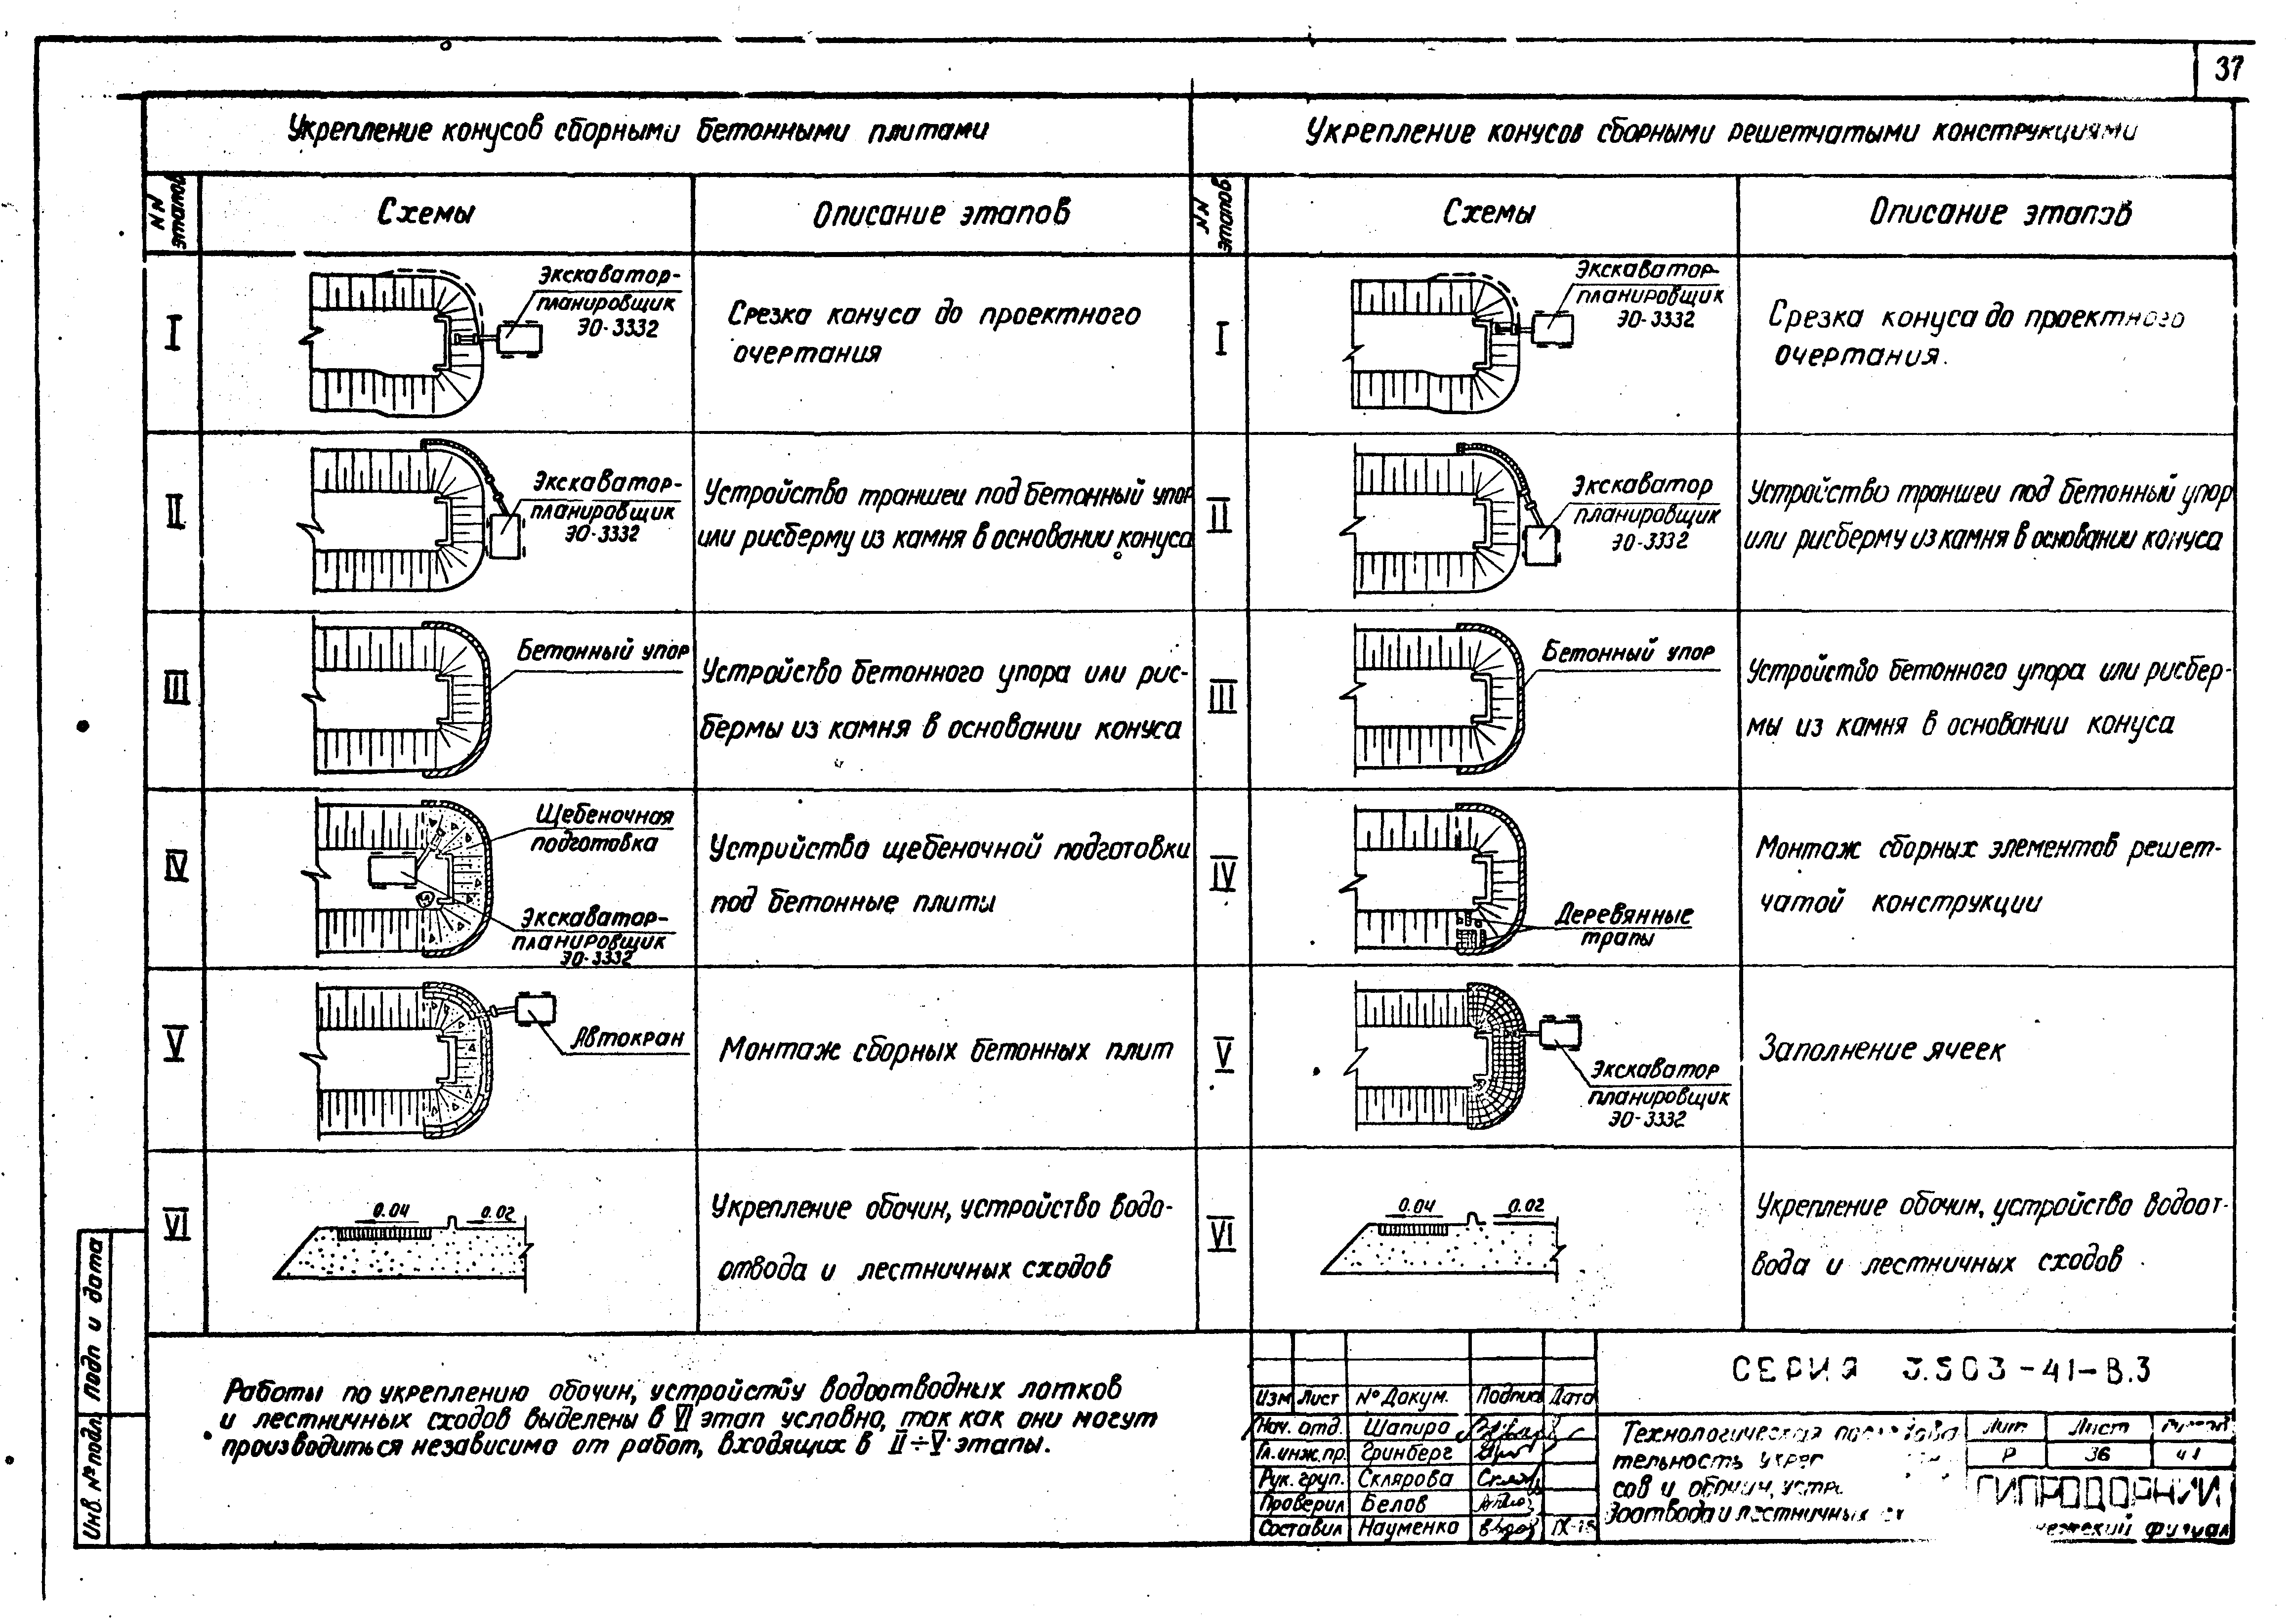 37
Укрепление конусов сборными бетонными плитами
Укрепление конусов сборными решетчатыми конструкциями
NN этапов
Схемы
Описание этапов
NN этапов
Схемы
Описание этапов
I
Экскаватор-
планировщик
ЭО-3332
Срезка конуса до проектного
очертания
I
Экскаватор-
планировщик
ЭО-3332
Срезка конуса до проектного
очертания.
II
Экскаватор-
планировщик
ЭО-3332
Устройство траншеи под бетонный упор
или рисберму из камня в основании конуса
II
Экскаватор
планировщик
ЭО-3332
Устройство траншеи под бетонный упор
или рисберму из камня в основании конуса
III
Бетонный упор
Устройство бетонного упора или рис-
бермы из камня в основании конуса
III
Бетонный упор
Устройство бетонного упора или рисбер-
мы из камня в основании конуса
IV
Щебеночная
подготовка
Экскаватор-
планировщик
ЭО-3332
Устройство щебеночной подготовки
под бетонные плиты
IV
Деревянные
трапы
Монтаж сборных элементов решет-
чатой конструкции
V
Автокран
Монтаж сборных бетонных плит
V
Экскаватор
планировщик
ЭО-3332
Заполнение ячеек
VI
0.04 0.02
Укрепление обочин, устройство водо-
отвода и лестничных сходов
VI
0.04 0.02
Укрепление обочин, устройство водоот-
вода и лестничных сходов
Работы по укреплению обочин, устройству водоотводных лотков
и лестничных сходов выделены в VI этап условно, так как они могут
производиться независимо от работ, входящих в II÷V этапы.
Инв. № подл. Подп и дата
СЕРИЯ 3.503-41-В.3
Изм Лист № Докум. Подпис Дата
Нач. отд. Шапиро
Гл.инж.пр. Гринберг
Рук. груп. Склярова
Проверил Белов
Составил Науменко
Технологическая
тельность
сов и обочин,
лестничных
Лит Лист
Р 36 41
ГИПРОДОРНИИ
филиал